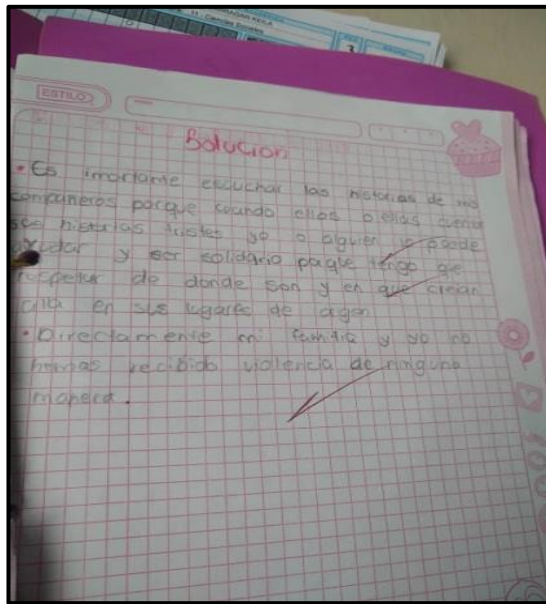 11 - Ciencias Sociales
3
ESTILO
Solucion
• Es importante escuchar las historias de mis
compañeros porque cuando ellos o ellas cuentan
sus historias tristes yo o alguien lo puede
ayudar y ser solidario paque tengo que
respetar de donde son y en que crean
alla en sus lugares de origen
• Directamente mi familia y yo no
hemos recibido violencia de ninguna
manera.